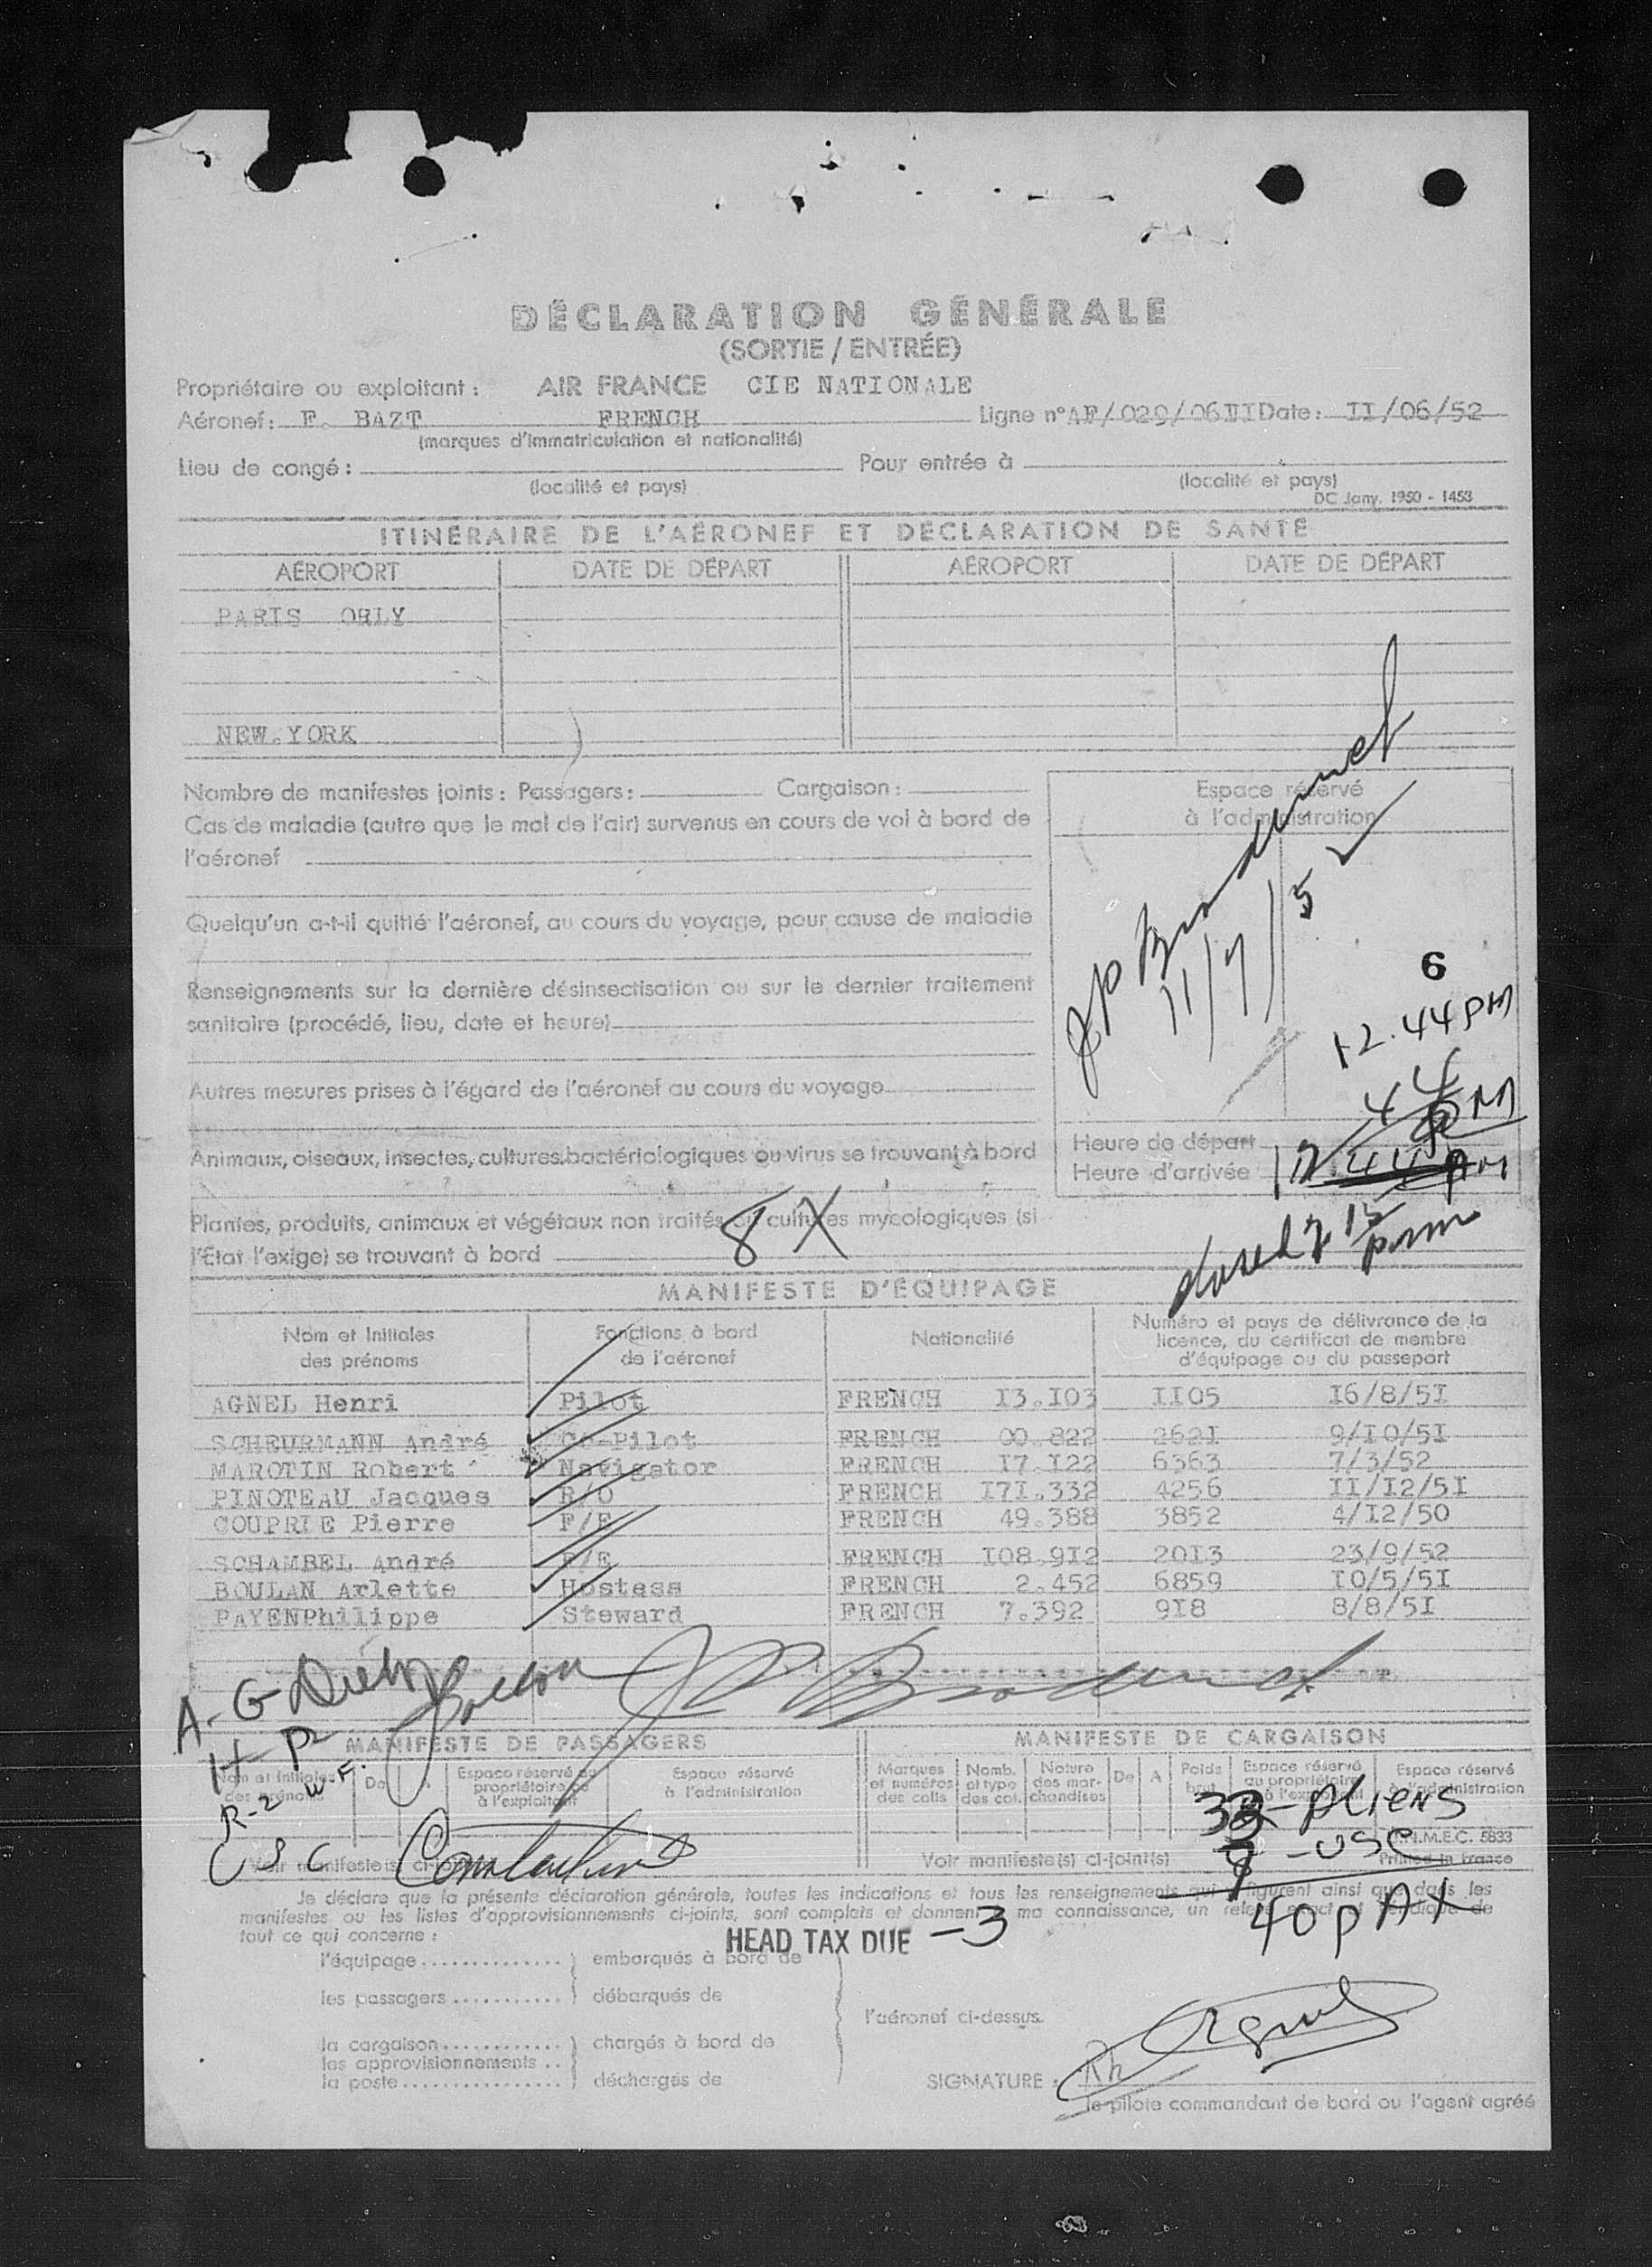 DÉCLARATION GÉNÉRALE
(SORTIE / ENTRÉE)
Propriétaire ou exploitant : AIR FRANCE CIE NATIONALE
Aéronef: F. BAZT FRENCH Ligne n° AF/029/06 Date: II/06/52
(marques d'immatriculation et nationalité)
Lieu de congé : Pour entrée à
(localité et pays) (localité et pays)
DC Jany. 1950 - 1453
ITINÉRAIRE DE L'AÉRONEF ET DÉCLARATION DE SANTÉ
AÉROPORT DATE DE DÉPART AÉROPORT DATE DE DÉPART
PARIS ORLY
NEW.YORK
Nombre de manifestes joints : Passagers : Cargaison :
Cas de maladie (autre que le mal de l'air) survenus en cours de vol à bord de
l'aéronef
Quelqu'un a-t-il quitté l'aéronef, au cours du voyage, pour cause de maladie
Renseignements sur la dernière désinsectisation ou sur le dernier traitement
sanitaire (procédé, lieu, date et heure)
Autres mesures prises à l'égard de l'aéronef au cours du voyage
Animaux, oiseaux, insectes, cultures bactériologiques ou virus se trouvant à bord
Plantes, produits, animaux et végétaux non traités ou cultures mycologiques (si
l'État l'exige) se trouvant à bord
8 X
Espace réservé
à l'administration
11/7/52
6
12.44 PM
Heure de départ
Heure d'arrivée
12 44 PM
MANIFESTE D'ÉQUIPAGE
Nom et Initiales des prénoms
Fonctions à bord de l'aéronef
Nationalité
Numéro et pays de délivrance de la
licence, du certificat de membre
d'équipage ou du passeport
AGNEL Henri Pilot FRENCH I3.I03 II05 I6/8/5I
SCHEURMANN André Co-Pilot FRENCH 00.822 262I 9/I0/5I
MAROTIN Robert Navigator FRENCH I7.I22 6363 7/3/52
PINOTEAU Jacques R/O FRENCH I7I.332 4256 II/I2/5I
COUPRIE Pierre F/E FRENCH 49.388 3852 4/I2/50
SCHAMBEL André F/E FRENCH I08.9I2 20I3 23/9/52
BOULAN Arlette Hostess FRENCH 2.452 6859 I0/5/5I
PAYENPhilippe Steward FRENCH 7.392 9I8 8/8/5I
MANIFESTE DE PASSAGERS
Nom et Initiales des prénoms
De
A
Espace réservé au
propriétaire ou
à l'exploitant
Espace réservé
à l'administration
Voir manifeste(s) ci-joint(s)
MANIFESTE DE CARGAISON
Marques et numéros des colis
Nomb. et type des col.
Nature des mar-chandises
De
A
Poids brut
Espace réservé
au propriétaire
à l'exploitant
Espace réservé
à l'administration
M.E.C. 5833
Voir manifeste(s) ci-joint(s) Printed in France
R-2
USC
- ALiENS
- USC
40 PAX
Je déclare que la présente déclaration générale, toutes les indications et tous les renseignements qui figurent ainsi que dans les
manifestes ou les listes d'approvisionnements ci-joints, sont complets et donnent à ma connaissance, un relevé exact et véridique de
tout ce qui concerne :
HEAD TAX DUE - 3
l'équipage embarqués à bord de
les passagers débarqués de
l'aéronef ci-dessus.
la cargaison chargés à bord de
les approvisionnements
la poste déchargés de
SIGNATURE :
le pilote commandant de bord ou l'agent agréé